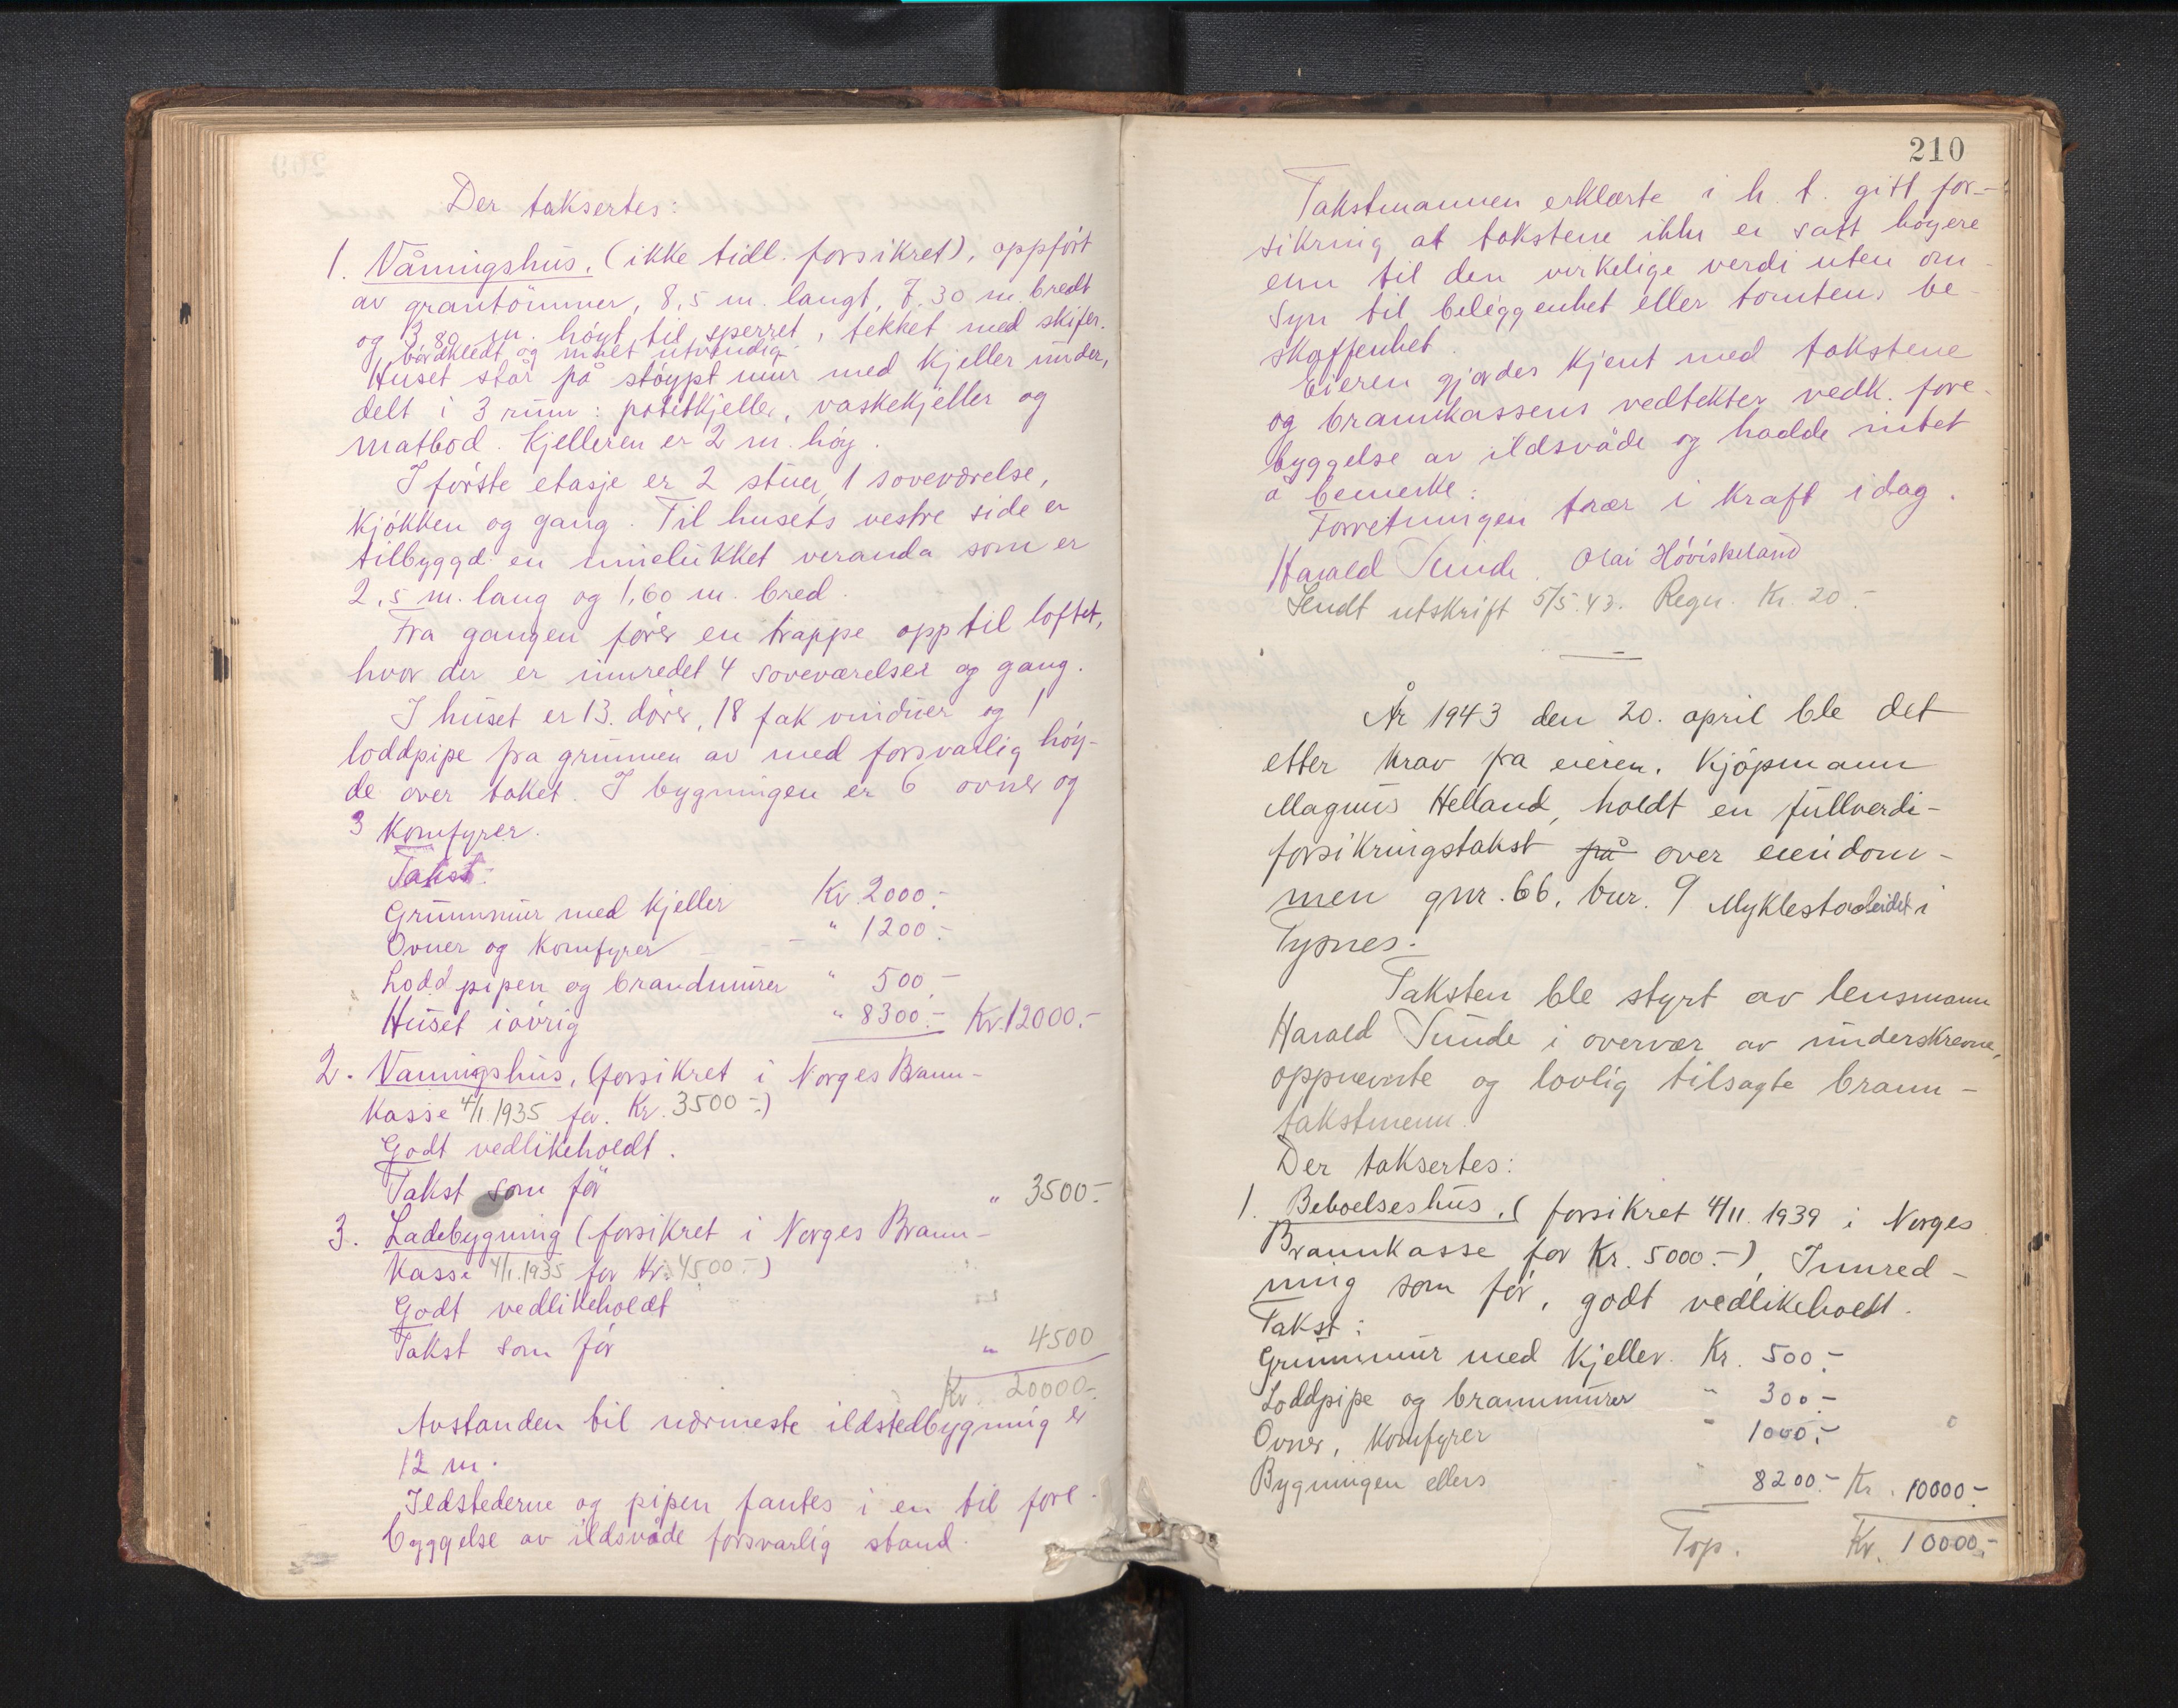 Der taksertes:
1. Våningshus, (ikke tidl. forsikret), oppført
av grantömmer, 8,5 m. langt, 7.30 m. bredt
og 3.80 m. höyt til sperret, tekket med skifer.
bordkledt og målet utvendig.
Huset står på stöypt mur med kjeller under,
delt i 3 rum: potetkjeller, vaskekjeller og
matbod. Kjelleren er 2 m. höy.
I förste etasje er 2 stuer, 1 soveværelse,
kjökken og gang. Til husets vestre side er
tilbyggd en innelukket veranda som er
2,5 m. lang og 1,60 m. bred.
Fra gangen förer en trappe opp til loftet,
hvor der er innredet 4 soveværelser og gang.
I huset er 13. dörer, 18 fak vinduer og 1
loddpipe fra grunnen av med forsvarlig höy-
de over taket. I bygningen er 6 ovner og
3 komfyrer.
Takst:
Grunnmur med kjeller Kr. 2000.-
Ovner og komfyrer - " 1200.-
Loddpipen og brandmurer " 500.-
Huset iövrig " 8300.- Kr. 12000.-
2. Våningshus, (forsikret i Norges Brann-
kasse 4/1. 1935 for. Kr. 3500.-)
Godt vedlikeholdt.
Takst som för " 3500.-
3. Ladebygning (forsikret i Norges Brann-
kasse 4/1. 1935 for Kr. 4500.-)
Godt vedlikeholdt
Takst som för " 4500
Kr. 20000.-
Avstanden til nærmeste ildstedbygning er
12 m.
Ildstederne og pipen fantes i en til fore-
byggelse av ildsvåde forsvarlig stand.
210
Takstmannen erklærte i h. t. gitt for-
sikring at takstene ikke er satt höyere
enn til den virkelige verdi uten om-
syn til beliggenhet eller tomtens be-
skaffenhet.
Eieren gjordes kjent med takstene
og brannkassens vedtekter vedk. fore-
byggelse av ildsvåde og hadde intet
å bemerke:
Forretningen trær i kraft idag.
Harald Sunde. Olai Hövískeland
Sendt utskrift 5/5.43. Regn. Kr. 20.-
År 1943 den 20. april ble det
etter krav fra eieren. Kjöpmann
Magnus Helland, holdt en fullverdi-
forsikringstakst på over eiendom-
men gnr. 66, bnr. 9 Myklestadeidet i
Tysnes.
Taksten ble styrt av lensmann
Harald Sunde i overvær av underskrevne,
oppnevnte og lovlig tilsagte brann-
takstmenn.
Der taksertes:
1. Beboelseshus, (forsikret 4/11. 1939 i Norges
Brannkasse for Kr. 5000.-), Innred-
ning som för, godt vedlikeholdt.
Takst:
Grunnmur med kjeller. Kr. 500.-
Loddpipe og brannmurer " 300.-
Ovner, komfyrer " 1000.-
Bygningen ellers " 8200.- Kr. 10000.-
Kr. 10000.-